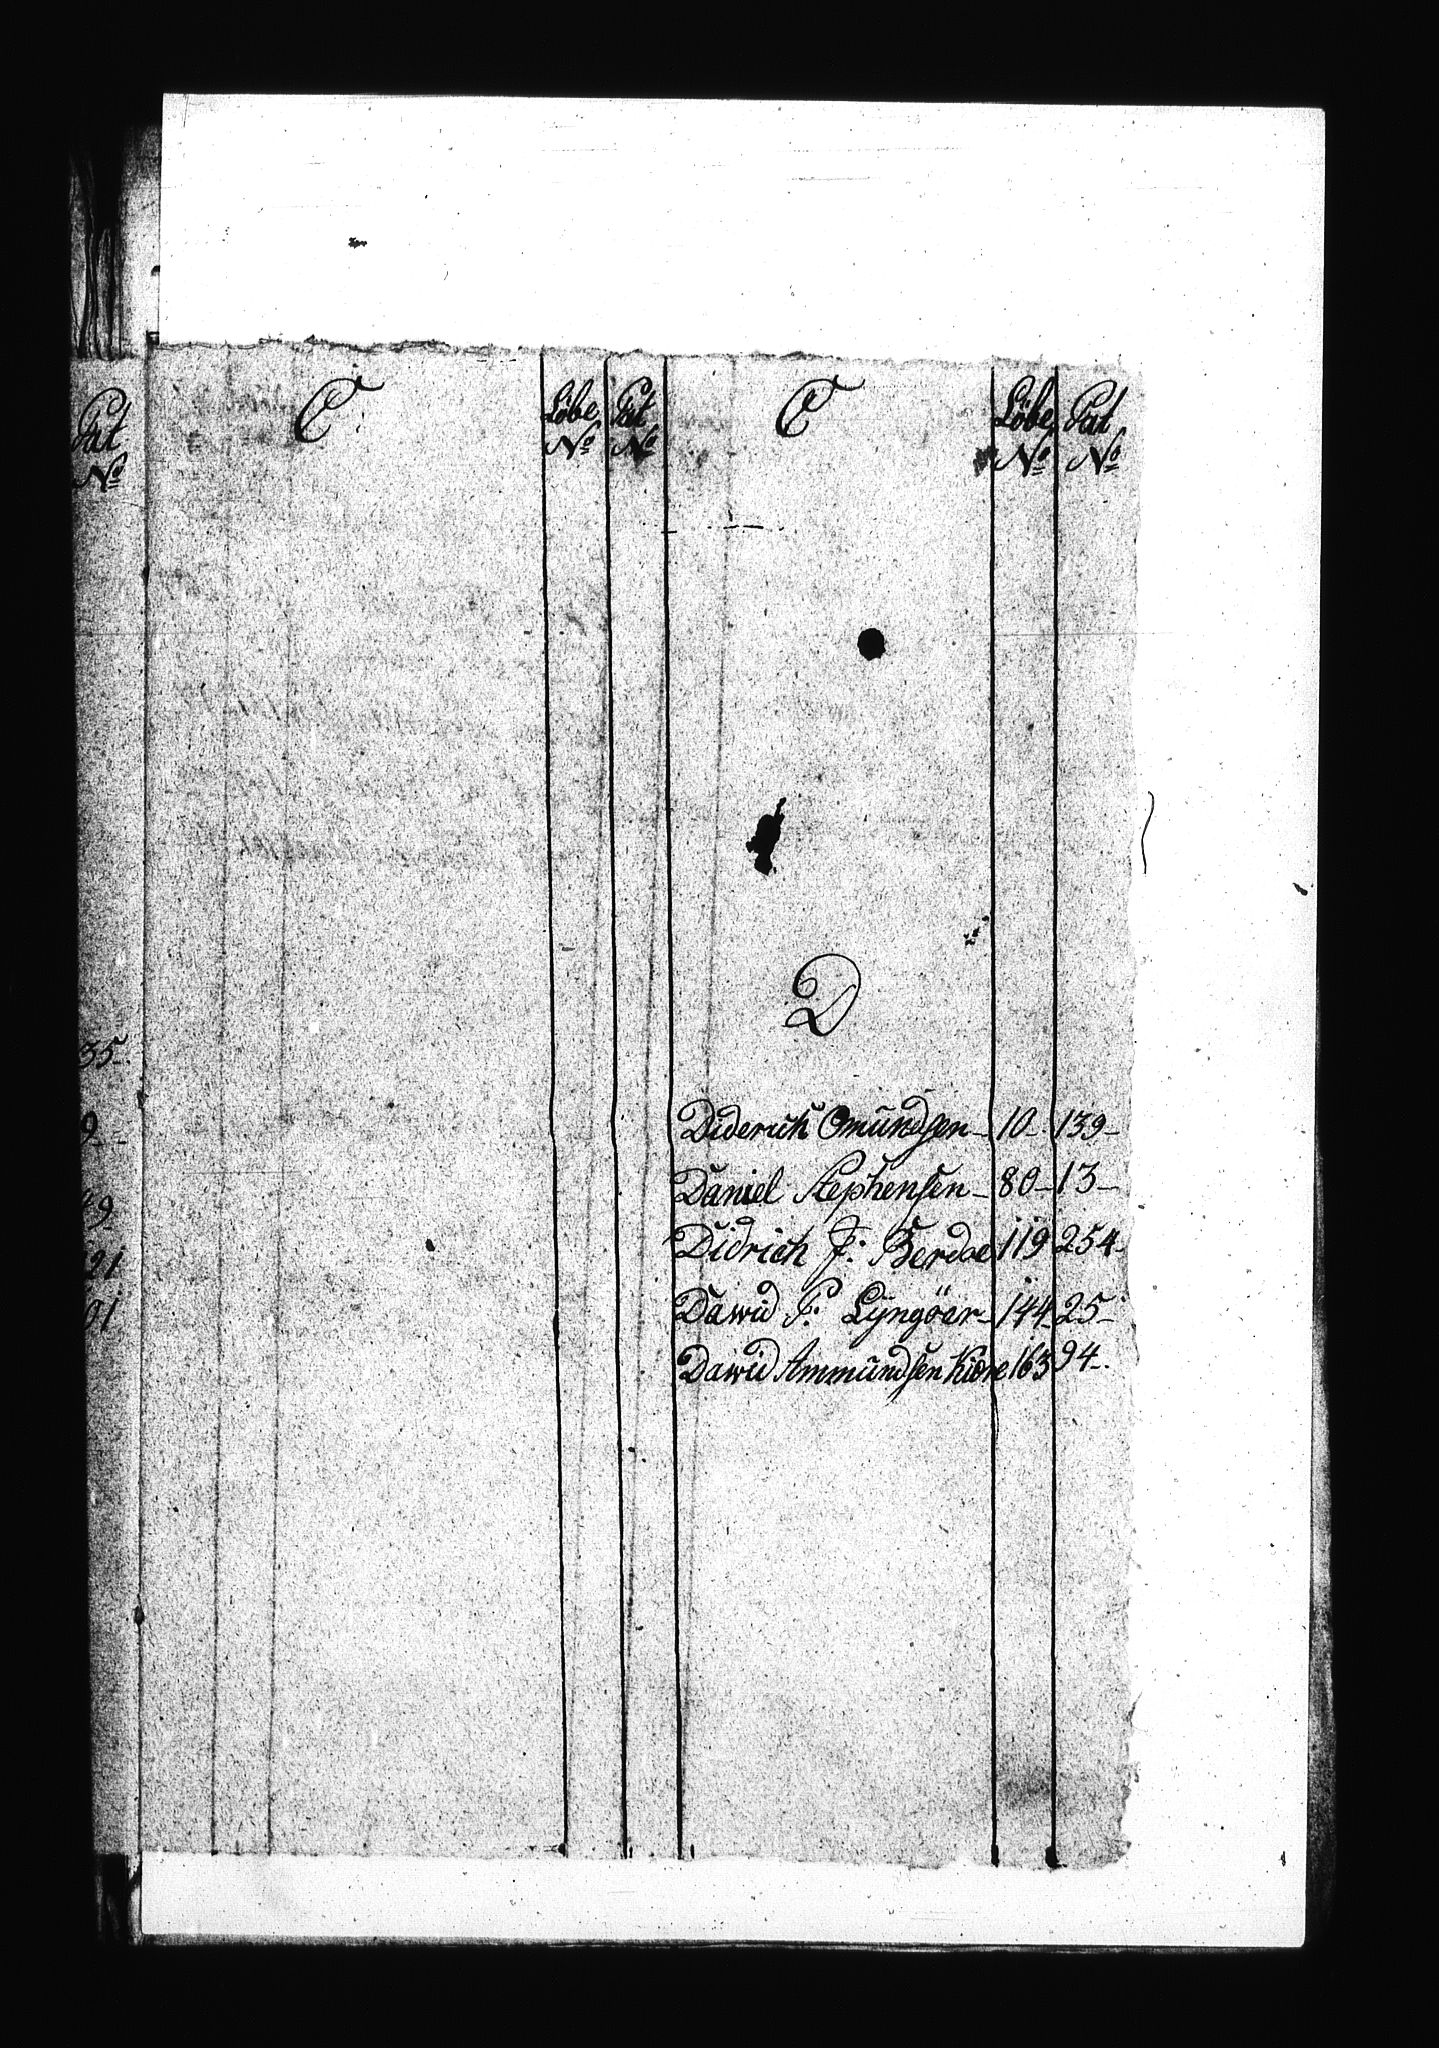 Pat
No
35-
9-
9
21
01
C:
Löbe No
Pat No
C
Löbe No
Pat No
D
Diderich Omündsen- 10- 139-
Daniel Stephensen- 80- 13-
Didrich J: Berdoe 119 254-
Dawid P: Lÿngöer- 144 25-
Dawid Ammündsen Kiøne 163 94-